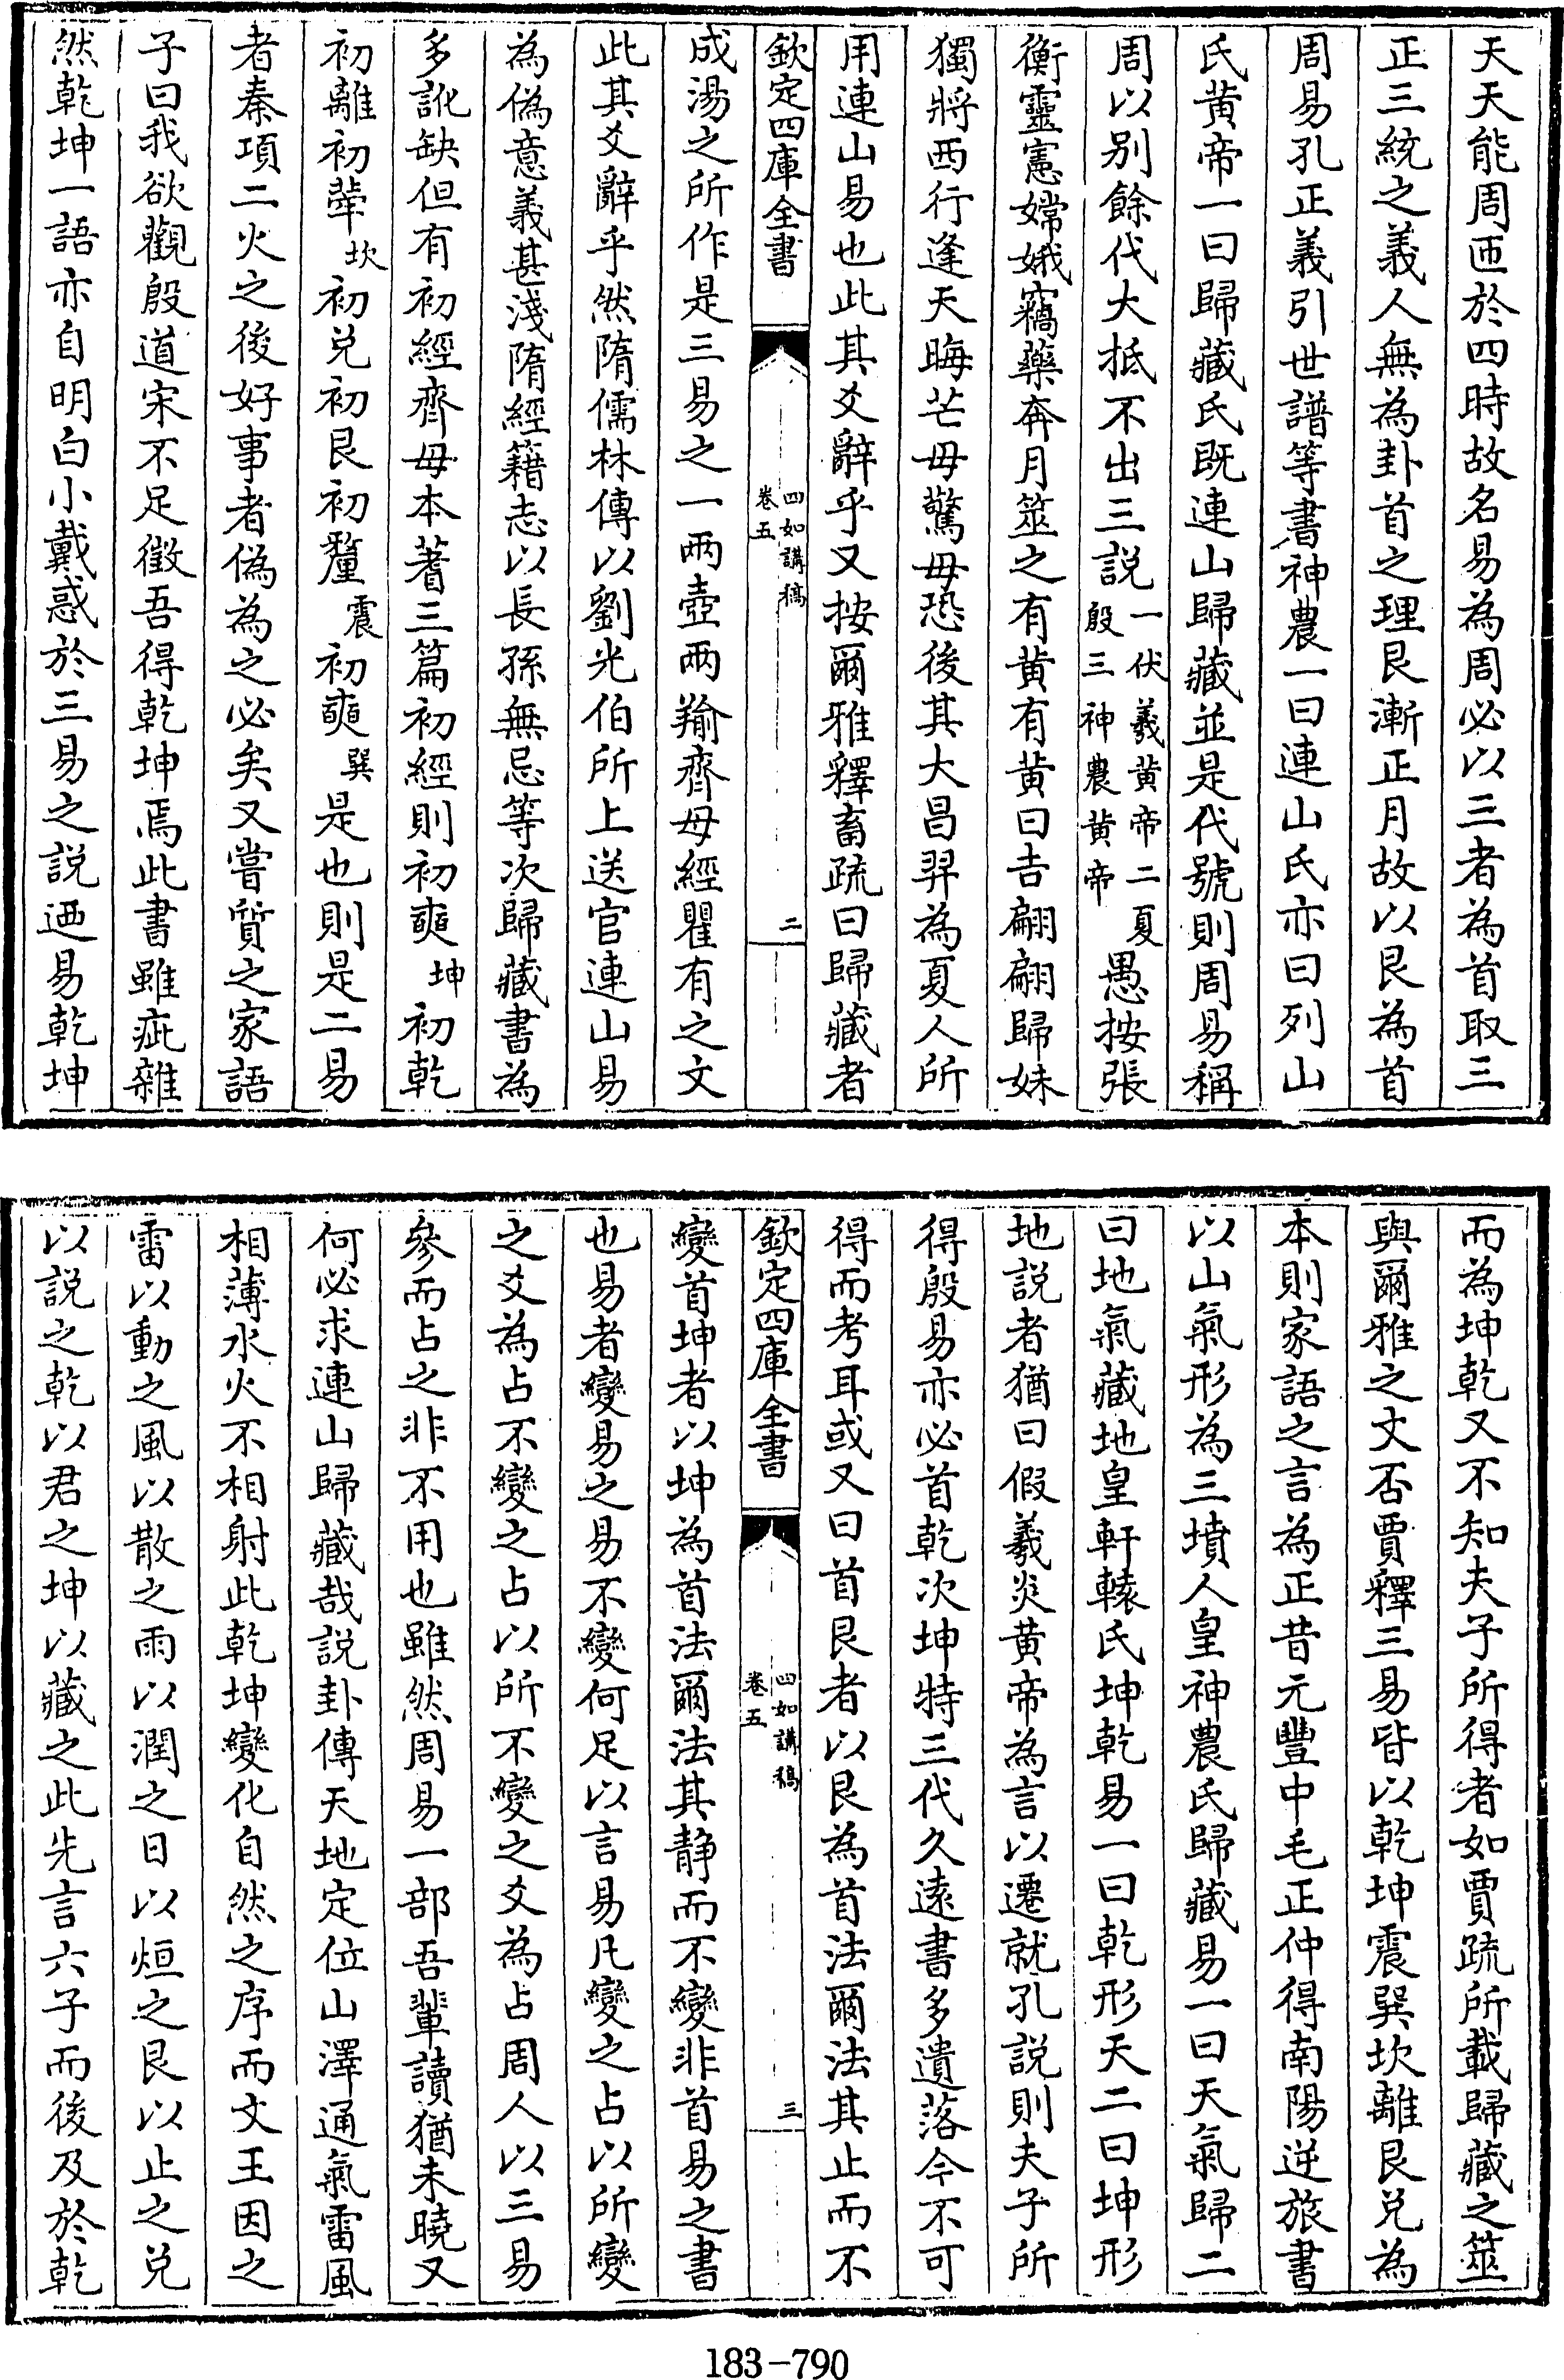 天天能周匝於四時故名易為周必以三者為首取三
正三統之義人無為卦首之理艮漸正月故以艮為首
周易孔正義引世譜等書神農一曰連山氏亦曰列山
氏黄帝一曰歸藏氏既連山歸藏並是代號則周易稱
周以別餘代大抵不出三説一伏羲黄帝二夏殷三神農黄帝愚按張
衡靈憲嫦娥竊藥奔月筮之有黄有黄曰吉翩翩歸妹
獨將西行逢天晦芒毋驚毋恐後其大昌羿為夏人所
用連山易也此其爻辭乎又按爾雅釋畜疏曰歸藏者
欽定四庫全書
四如講稿
卷五
二
成湯之所作是三易之一兩壺兩羭齊母經瞿有之文
此其爻辭乎然隋儒林傳以劉光伯所上送官連山易
為偽意義甚淺隋經籍志以長孫無忌等次歸藏書為
多訛缺但有初經齊母本蓍三篇初經則初奭坤初乾
初離初犖坎初兌初艮初釐震初奭巽是也則是二易
者秦項二火之後好事者偽為之必矣又嘗質之家語
子曰我欲觀殷道宋不足徵吾得乾坤焉此書雖疵雜
然乾坤一語亦自明白小戴惑於三易之説迺易乾坤
而為坤乾又不知夫子所得者如賈疏所載歸藏之筮
與爾雅之文否賈釋三易皆以乾坤震巽坎離艮兌為
本則家語之言為正昔元豐中毛正仲得南陽逆旅書
以山氣形為三墳人皇神農氏歸藏易一曰天氣歸二
曰地氣藏地皇軒轅氏坤乾易一曰乾形天二曰坤形
地説者猶曰假羲炎黄帝為言以遷就孔説則夫子所
得殷易亦必首乾次坤特三代久遠書多遺落今不可
得而考耳或又曰首艮者以艮為首法爾法其止而不
欽定四庫全書
四如講稿
卷五
三
變首坤者以坤為首法爾法其静而不變非首易之書
也易者變易之易不變何足以言易凡變之占以所變
之爻為占不變之占以所不變之爻為占周人以三易
參而占之非不用也雖然周易一部吾輩讀猶未曉又
何必求連山歸藏哉説卦傳天地定位山澤通氣雷風
相薄水火不相射此乾坤變化自然之序而文王因之
雷以動之風以散之雨以潤之日以烜之艮以止之兌
以説之乾以君之坤以藏之此先言六子而後及於乾
183-790